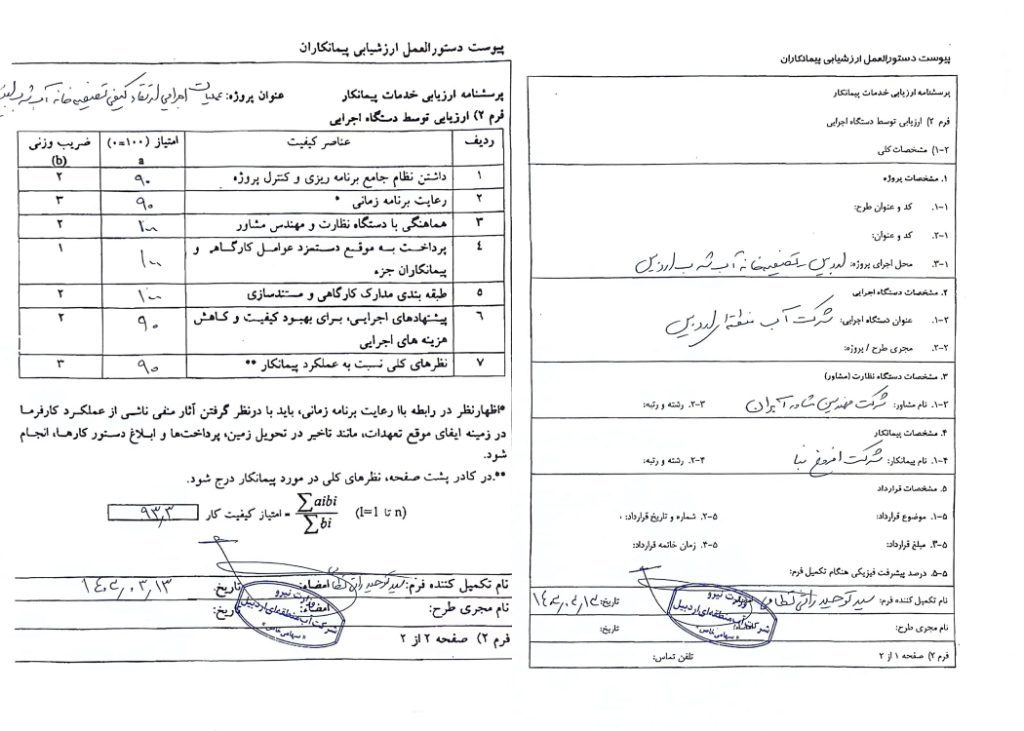 پیوست دستورالعمل ارزشیابی پیمانکاران
پرسشنامه ارزیابی خدمات پیمانکار
فرم ۲) ارزیابی توسط دستگاه اجرایی
۱-۲) مشخصات کلی
۱. مشخصات پروژه
۱-۱. کد و عنوان طرح:
۲-۱. کد و عنوان:
۳-۱. محل اجرای پروژه: اردبیل - تصفیه خانه آب شرب اردبیل
۲. مشخصات دستگاه اجرایی
۱-۲. عنوان دستگاه اجرایی: شرکت آب منطقه ای اردبیل
۲-۲. مجری طرح / پروژه:
۳. مشخصات دستگاه نظارت (مشاور)
۱-۳. نام مشاور: شرکت مهندسی مشاور آبران ۲-۳. رشته و رتبه:
۴. مشخصات پیمانکار
۱-۴. نام پیمانکار: شرکت افروغ بنا ۲-۴. رشته و رتبه:
۵. مشخصات قرارداد
۱-۵. موضوع قرارداد: ۲-۵. شماره و تاریخ قرارداد: .
۳-۵. مبلغ قرارداد: ۴-۵. زمان خاتمه قرارداد:
۵-۵. درصد پیشرفت فیزیکی هنگام تکمیل فرم:
نام تکمیل کننده فرم: سید توحید تاریخ:
وزارت نیرو
شرکت آب منطقه‌ای اردبیل
«سهامی خاص»
نام مجری طرح: امضاء: تاریخ:
فرم ۲) صفحه ۱ از ۲ تلفن تماس:
پیوست دستورالعمل ارزشیابی پیمانکاران
پرسشنامه ارزیابی خدمات پیمانکار عنوان پروژه: عملیات اجرایی ارتقاء کیفی تصفیه خانه آب شرب
فرم ۲) ارزیابی توسط دستگاه اجرایی
ردیف عناصر کیفیت امتیاز (۱۰۰=۰) a ضریب وزنی (b)
۱ داشتن نظام جامع برنامه ریزی و کنترل پروژه ۹۰ ۲
۲ رعایت برنامه زمانی * ۹۰ ۳
۳ هماهنگی با دستگاه نظارت و مهندس مشاور ۱۰۰ ۲
۴ پرداخت به موقع دستمزد عوامل کارگاهی و ۱۰۰ ۱
پیمانکاران جزء
۵ طبقه بندی مدارک کارگاهی و مستندسازی ۱۰۰ ۲
۶ پیشنهادهای اجرایی، برای بهبود کیفیت و کاهش ۹۰ ۲
هزینه های اجرایی
۷ نظرهای کلی نسبت به عملکرد پیمانکار ** ۹۰ ۳
*اظهارنظر در رابطه باا رعایت برنامه زمانی، باید با درنظر گرفتن آثار منفی ناشی از عملکرد کارفرما
در زمینه ایفای موقع تعهدات، مانند تاخیر در تحویل زمین، پرداخت‌ها و ابلاغ دستور کارها، انجام
شود.
**.در کادر پشت صفحه، نظرهای کلی در مورد پیمانکار درج شود.
(I=1 تا n) ∑aibi / ∑bi = امتیاز کیفیت کار ۹۳٫۳
نام تکمیل کننده فرم: سید توحید امضاء: تاریخ: ۱۴۰۲,۰۳,۱۳
وزارت نیرو
شرکت آب منطقه‌ای اردبیل
«سهامی خاص»
نام مجری طرح: امضاء: تاریخ:
فرم ۲) صفحه ۲ از ۲